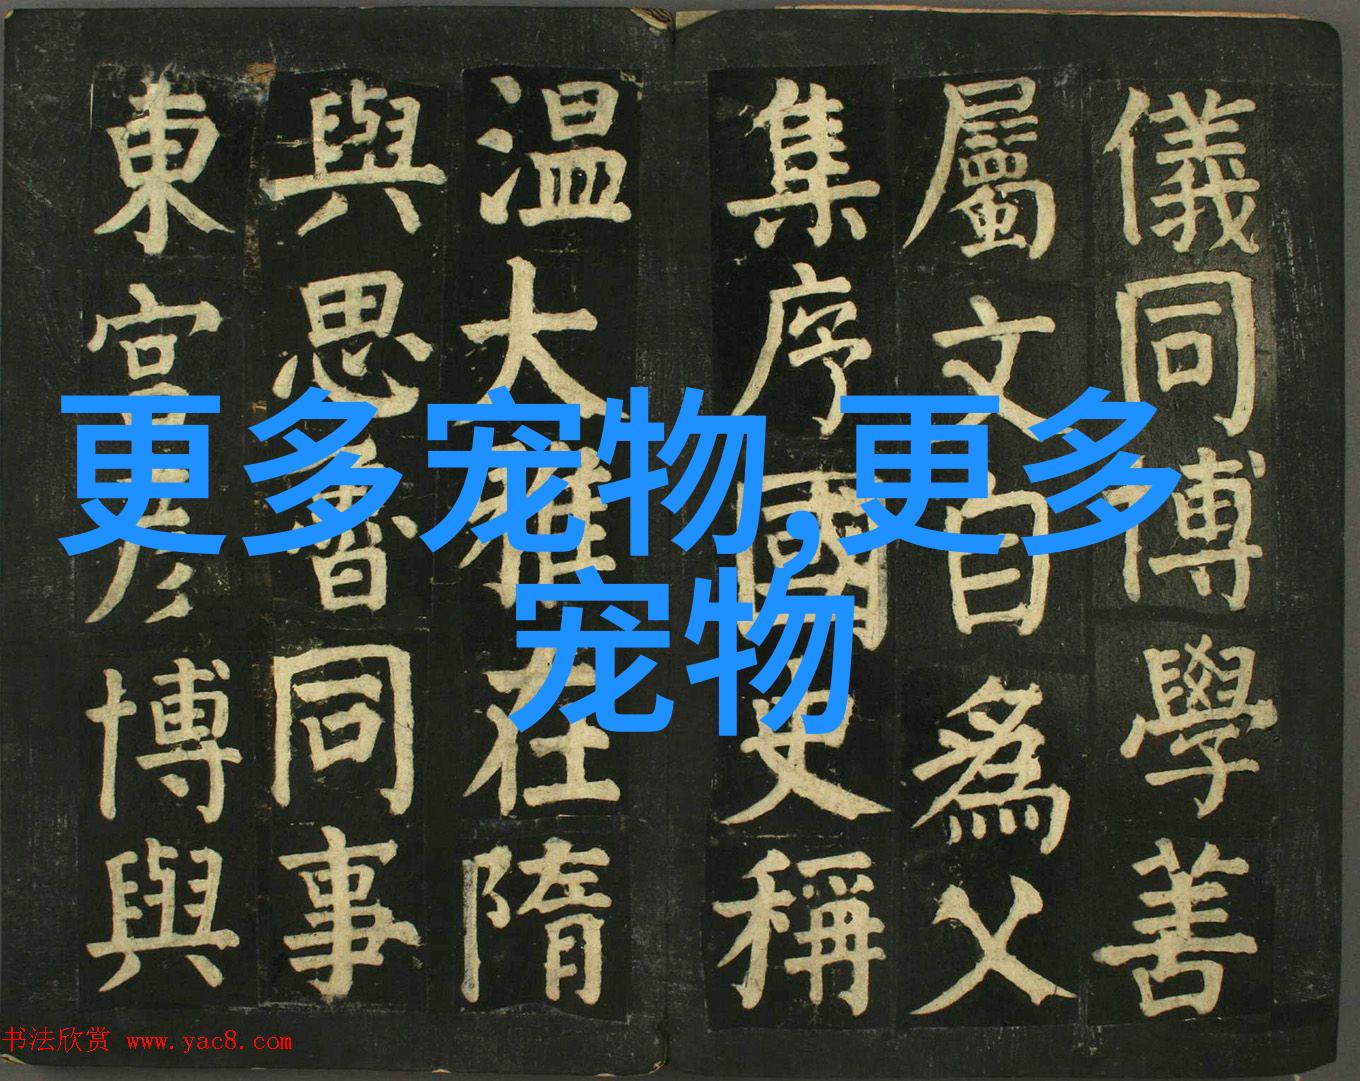 儀同博學善
屬文自爲父
集序國史稱
温大雅在隋
與思魯同事
東宫彦博與
更多宠物,更多
宠物
书法欣赏 www.yac8.com